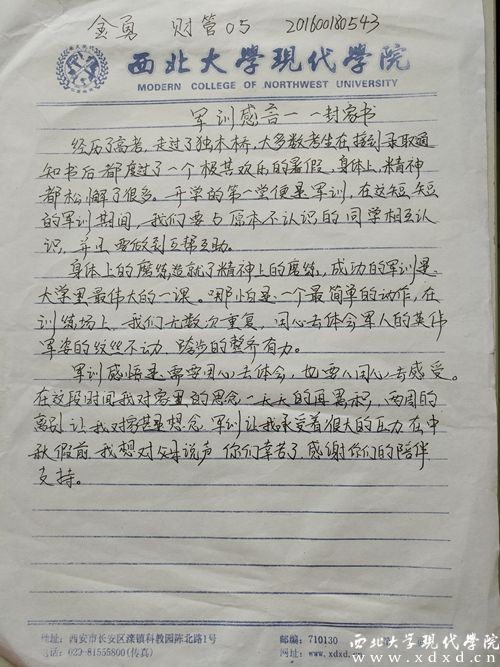 金勇 财管05 201600180543
西北大学现代学院
MODERN COLLEGE OF NORTHWEST UNIVERSITY
军训感言——一封家书
经历了高考,走过了独木桥,大多数考生在接到录取通
知书后都度过了一个极其欢乐的暑假,身体上,精神
都松懈了很多。开学的第一堂便是军训,在这短短
的军训期间,我们要与原本不认识的同学相互认
识,并且要做到互帮互助。
身体上的磨练造就了精神上的磨练,成功的军训是
大学里最伟大的一课。哪怕是一个最简单的动作,在
训练场上,我们无数次重复,用心去体会军人的英伟
军姿的纹丝不动,跨步的整齐有力。
军训感悟是需要用心去体会,也要用心去感受。
在这段时间我对家里的思念一天天的再累积,两周的
离别让我对家甚是想念 军训让我承受着很大的压力 在中
秋假前 我想对父母说声 你们辛苦了 感谢你们的陪伴
支持。
地址:西安市长安区滦镇科教园陈北路1号
邮编:710130
电话:029-81555800(传真)
网址:www.xdxd.
西北大学现代学院
www.xdxd.cn